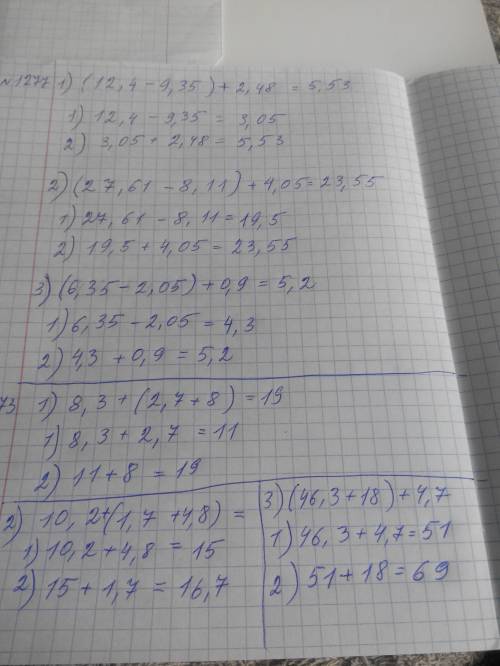 №1277 1) (12,4 - 9,35) + 2,48 = 5,53
1) 12,4 - 9,35 = 3,05
2) 3,05 + 2,48 = 5,53
2) (27,61 - 8,11) + 4,05 = 23,55
1) 27,61 - 8,11 = 19,5
2) 19,5 + 4,05 = 23,55
3) (6,35 - 2,05) + 0,9 = 5,2
1) 6,35 - 2,05 = 4,3
2) 4,3 + 0,9 = 5,2
73 1) 8,3 + (2,7 + 8) = 19
1) 8,3 + 2,7 = 11
2) 11 + 8 = 19
2) 10,2 + (1,7 + 4,8) =
1) 10,2 + 4,8 = 15
2) 15 + 1,7 = 16,7
3) (46,3 + 18) + 4,7
1) 46,3 + 4,7 = 51
2) 51 + 18 = 69